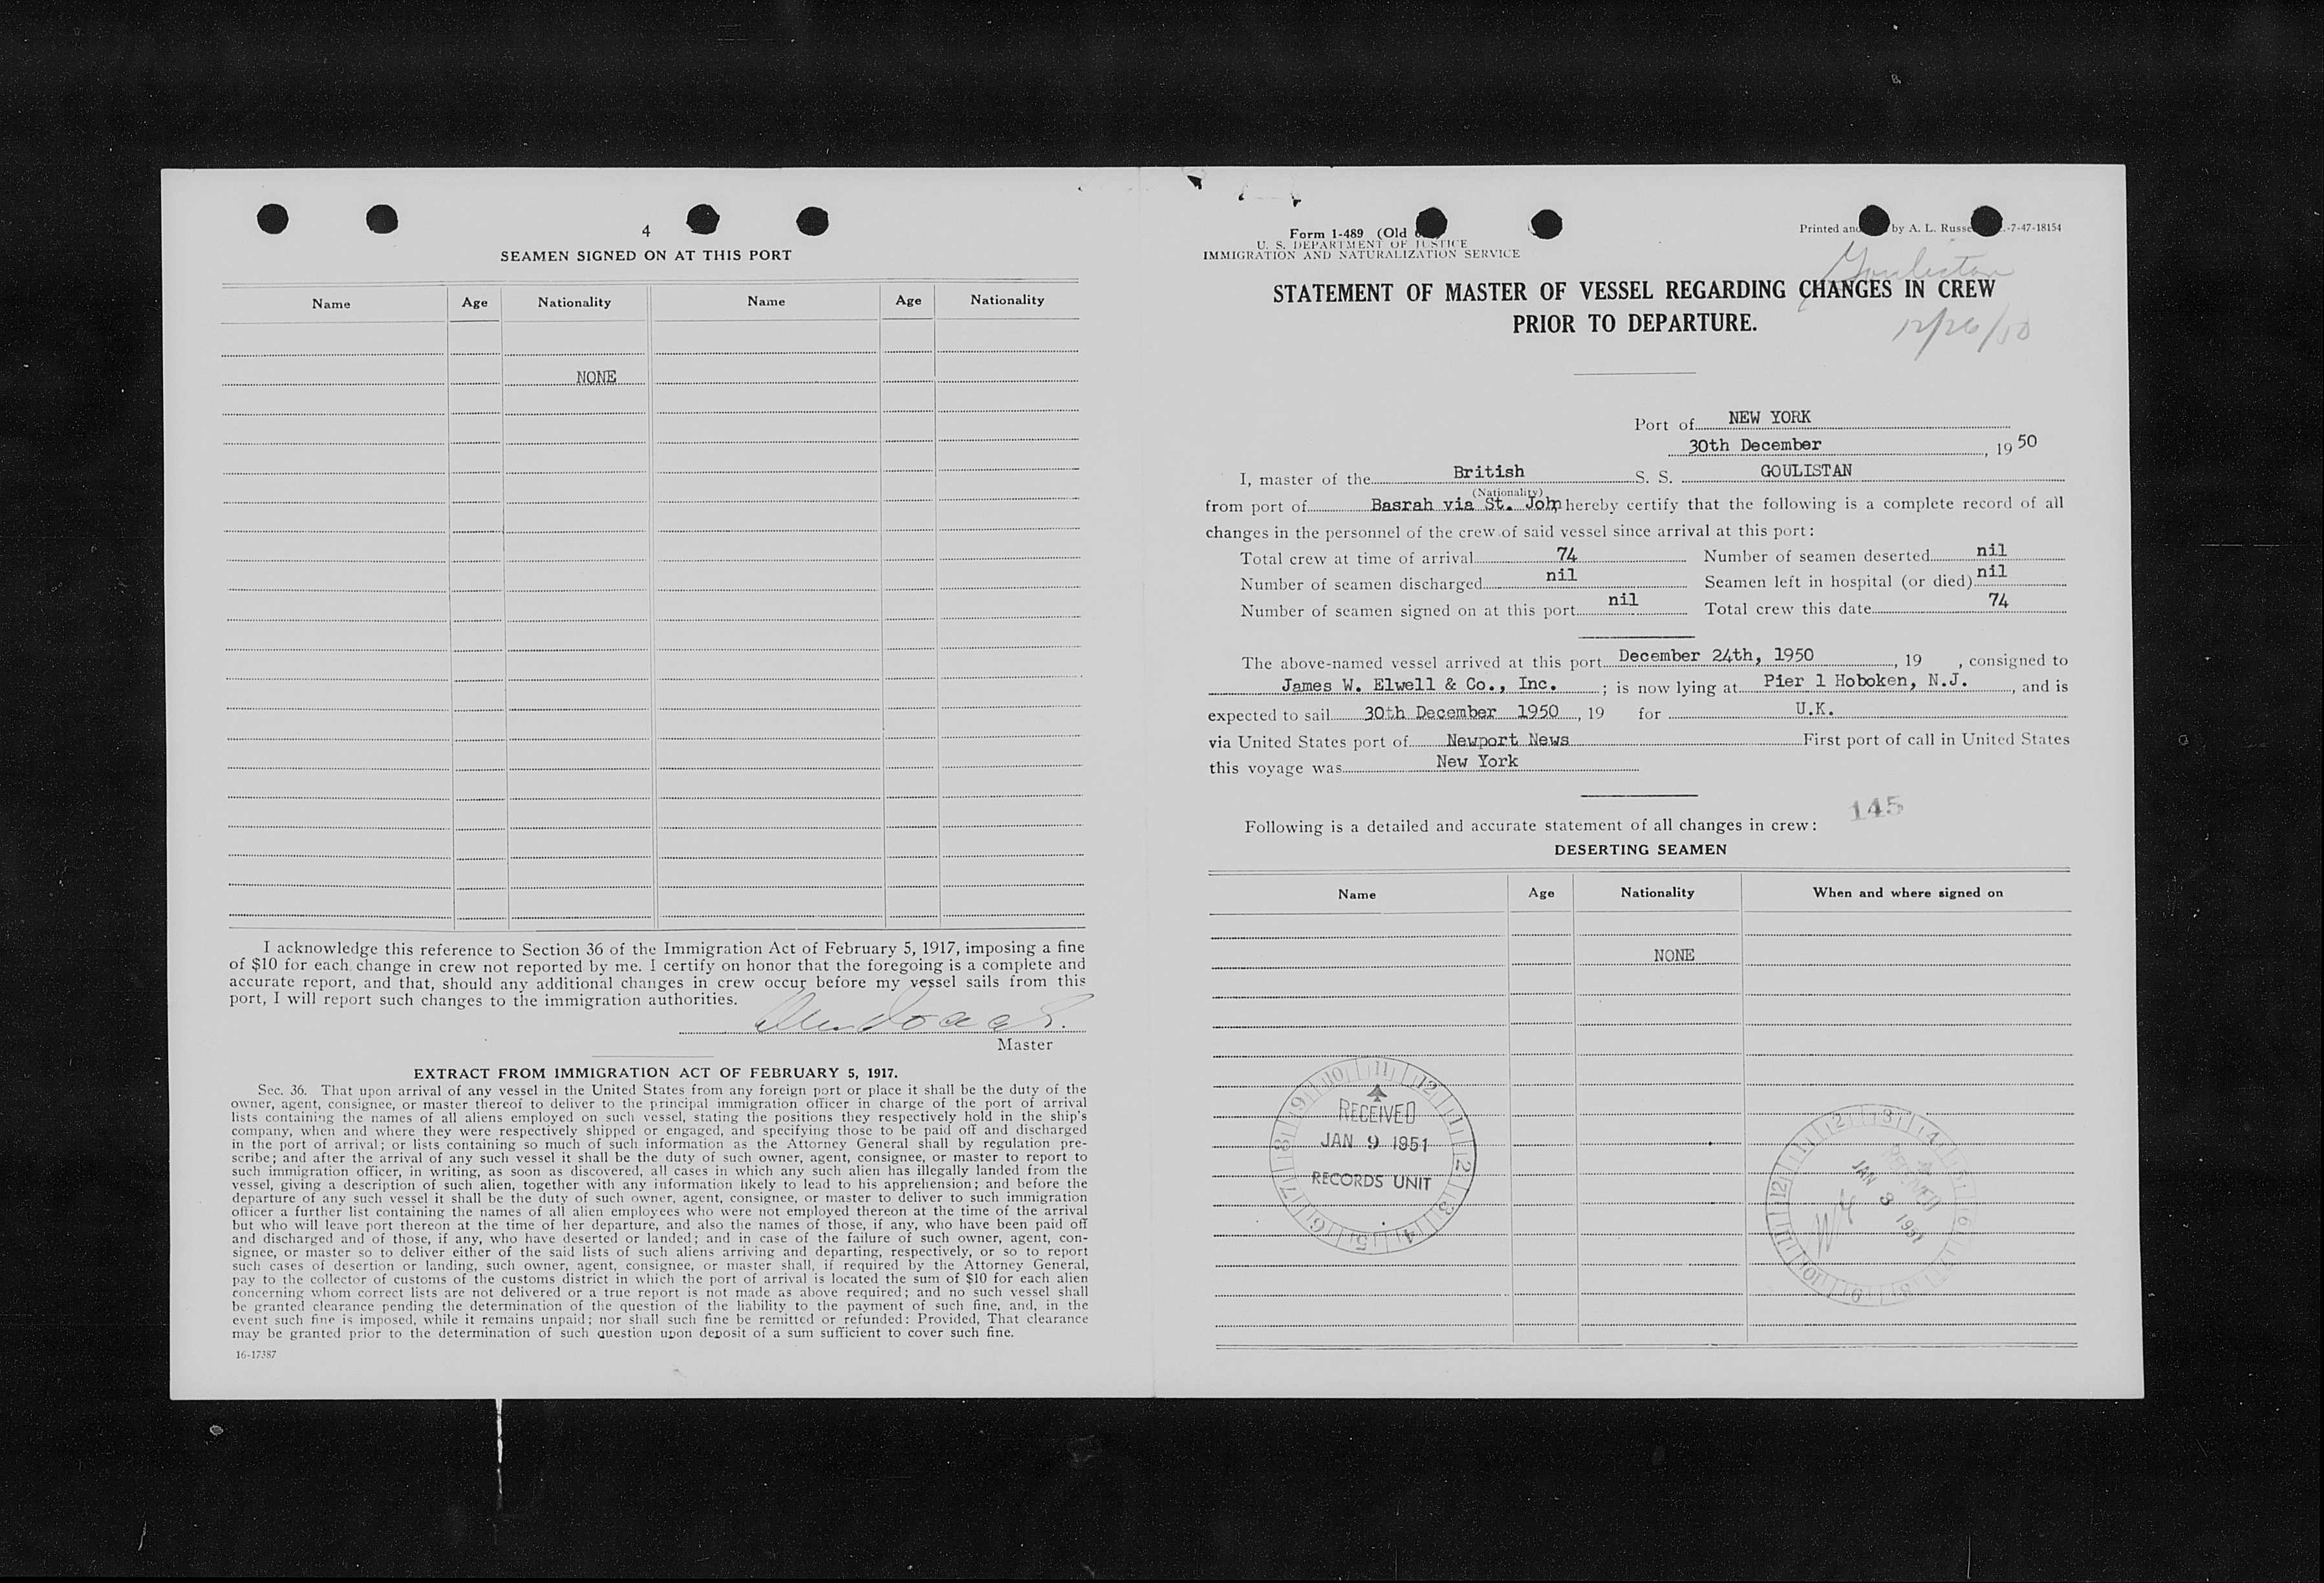 4
SEAMEN SIGNED ON AT THIS PORT
Name Age Nationality Name Age Nationality
NONE
I acknowledge this reference to Section 36 of the Immigration Act of February 5, 1917, imposing a fine
of $10 for each change in crew not reported by me. I certify on honor that the foregoing is a complete and
accurate report, and that, should any additional changes in crew occur before my vessel sails from this
port, I will report such changes to the immigration authorities.
Master
EXTRACT FROM IMMIGRATION ACT OF FEBRUARY 5, 1917.
Sec. 36. That upon arrival of any vessel in the United States from any foreign port or place it shall be the duty of the
owner, agent, consignee, or master thereof to deliver to the principal immigration officer in charge of the port of arrival
lists containing the names of all aliens employed on such vessel, stating the positions they respectively hold in the ship's
company, when and where they were respectively shipped or engaged, and specifying those to be paid off and discharged
in the port of arrival; or lists containing so much of such information as the Attorney General shall by regulation pre-
scribe; and after the arrival of any such vessel it shall be the duty of such owner, agent, consignee, or master to report to
such immigration officer, in writing, as soon as discovered, all cases in which any such alien has illegally landed from the
vessel, giving a description of such alien, together with any information likely to lead to his apprehension; and before the
departure of any such vessel it shall be the duty of such owner, agent, consignee, or master to deliver to such immigration
officer a further list containing the names of all alien employees who were not employed thereon at the time of the arrival
but who will leave port thereon at the time of her departure, and also the names of those, if any, who have been paid off
and discharged and of those, if any, who have deserted or landed; and in case of the failure of such owner, agent, con-
signee, or master so to deliver either of the said lists of such aliens arriving and departing, respectively, or so to report
such cases of desertion or landing, such owner, agent, consignee, or master shall, if required by the Attorney General,
pay to the collector of customs of the customs district in which the port of arrival is located the sum of $10 for each alien
concerning whom correct lists are not delivered or a true report is not made as above required; and no such vessel shall
be granted clearance pending the determination of the question of the liability to the payment of such fine, and, in the
event such fine is imposed, while it remains unpaid; nor shall such fine be remitted or refunded: Provided, That clearance
may be granted prior to the determination of such question upon deposit of a sum sufficient to cover such fine.
16-17387
Form 1-489 (Old
U. S. DEPARTMENT OF JUSTICE
IMMIGRATION AND NATURALIZATION SERVICE
Printed and by A. L. Russe -7-47-18154
Goulistan
STATEMENT OF MASTER OF VESSEL REGARDING CHANGES IN CREW
PRIOR TO DEPARTURE.
12/26/50
Port of NEW YORK
30th December, 19 50
I, master of the British S. S. GOULISTAN
(Nationality)
from port of Basrah via St. John hereby certify that the following is a complete record of all
changes in the personnel of the crew of said vessel since arrival at this port:
Total crew at time of arrival 74 Number of seamen deserted nil
Number of seamen discharged nil Seamen left in hospital (or died) nil
Number of seamen signed on at this port nil Total crew this date 74
The above-named vessel arrived at this port December 24th, 1950, 19 , consigned to
James W. Elwell & Co., Inc. ; is now lying at Pier 1 Hoboken, N.J. , and is
expected to sail 30th December 1950, 19 for U.K.
via United States port of Newport News First port of call in United States
this voyage was New York
145
Following is a detailed and accurate statement of all changes in crew:
DESERTING SEAMEN
Name Age Nationality When and where signed on
NONE
10 11 12 1 2 3 4 5 6 7 8 9
RECEIVED
JAN 9 1951
RECORDS UNIT
RECEIVED
JAN 3 1951